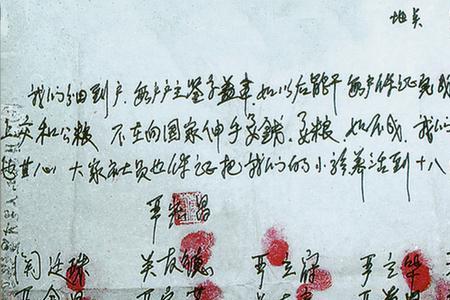 地点
我们分田到户.每户户主签字盖章.如以后能干每户保证完
上交和公粮 不在向国家伸手要钱.要粮.如不成.我们
心 大家社员也保证把我们的小孩养活到十八
严宏昌
关廷珠 关友德 严立符 严立华